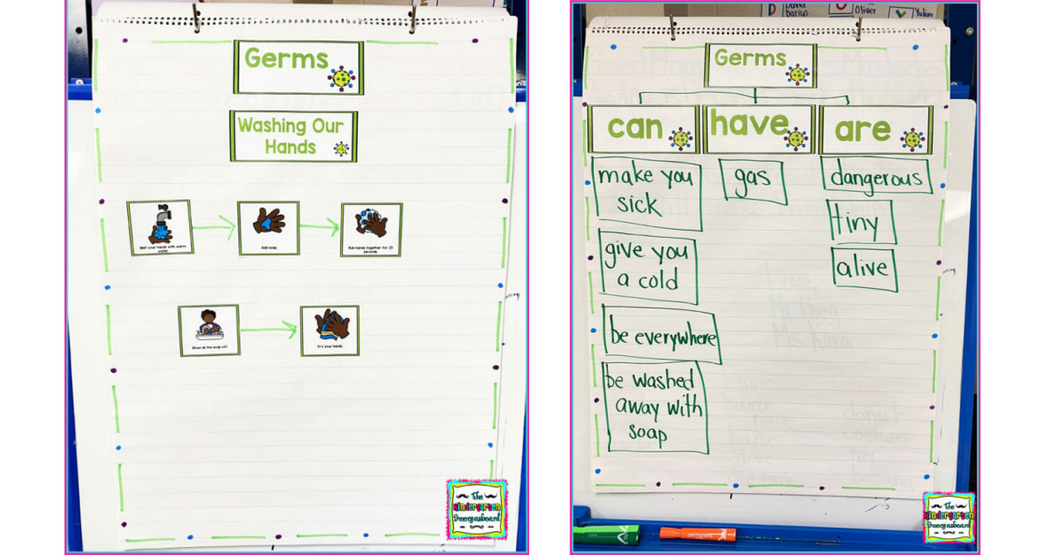 Germs
Washing Our
Hands
Wet your hands with warm
water.
Add soap.
Rub hands together for 20
seconds.
Rinse all the soap off.
Dry your hands.
The
Kindergarten
Smorgasboard
Olivier
Germs
can
have
are
make you
sick
give you
a cold
be everywhere
be washed
away with
soap
gas
dangerous
tiny
alive
The
Kindergarten
Smorgasboard